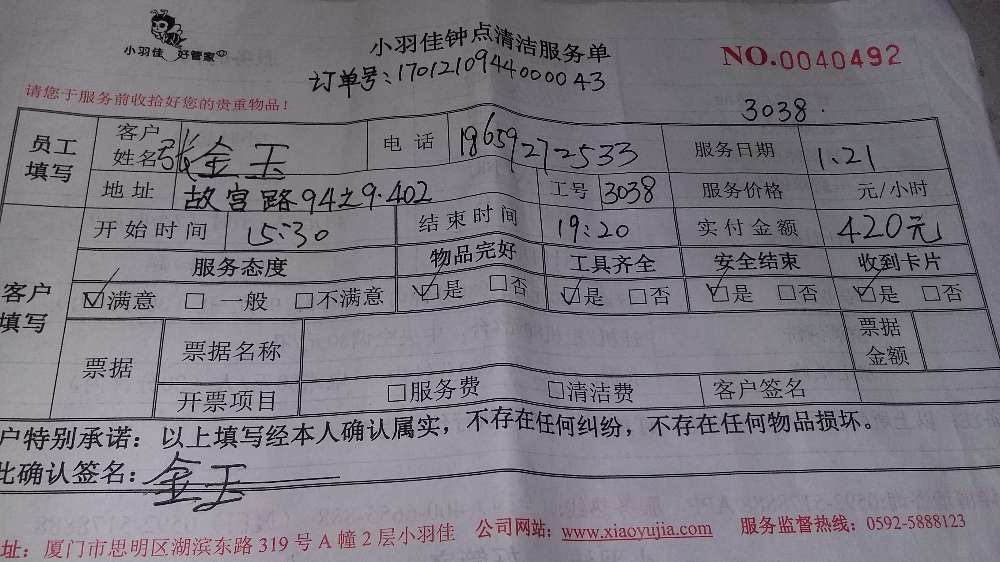 小羽佳 好管家
小羽佳钟点清洁服务单
NO.0040492
订单号:17012109440000043
请您于服务前收拾好您的贵重物品！
3038.
员工填写 客户姓名 张金玉 电话 18659272533 服务日期 1.21
地址 故宫路94之9.402 工号 3038 服务价格 元/小时
开始时间 15:30 结束时间 19:20 实付金额 420元
客户填写 服务态度 物品完好 工具齐全 安全结束 收到卡片
☑满意 □一般 □不满意 ☑是 □否 ☑是 □否 ☑是 □否 ☑是 □否
票据 票据名称 票据金额
开票项目 □服务费 □清洁费 客户签名
户特别承诺：以上填写经本人确认属实，不存在任何纠纷，不存在任何物品损坏。
此确认签名：金玉
址：厦门市思明区湖滨东路319号A幢2层小羽佳 公司网站：www.xiaoyujia.com 服务监督热线：0592-5888123